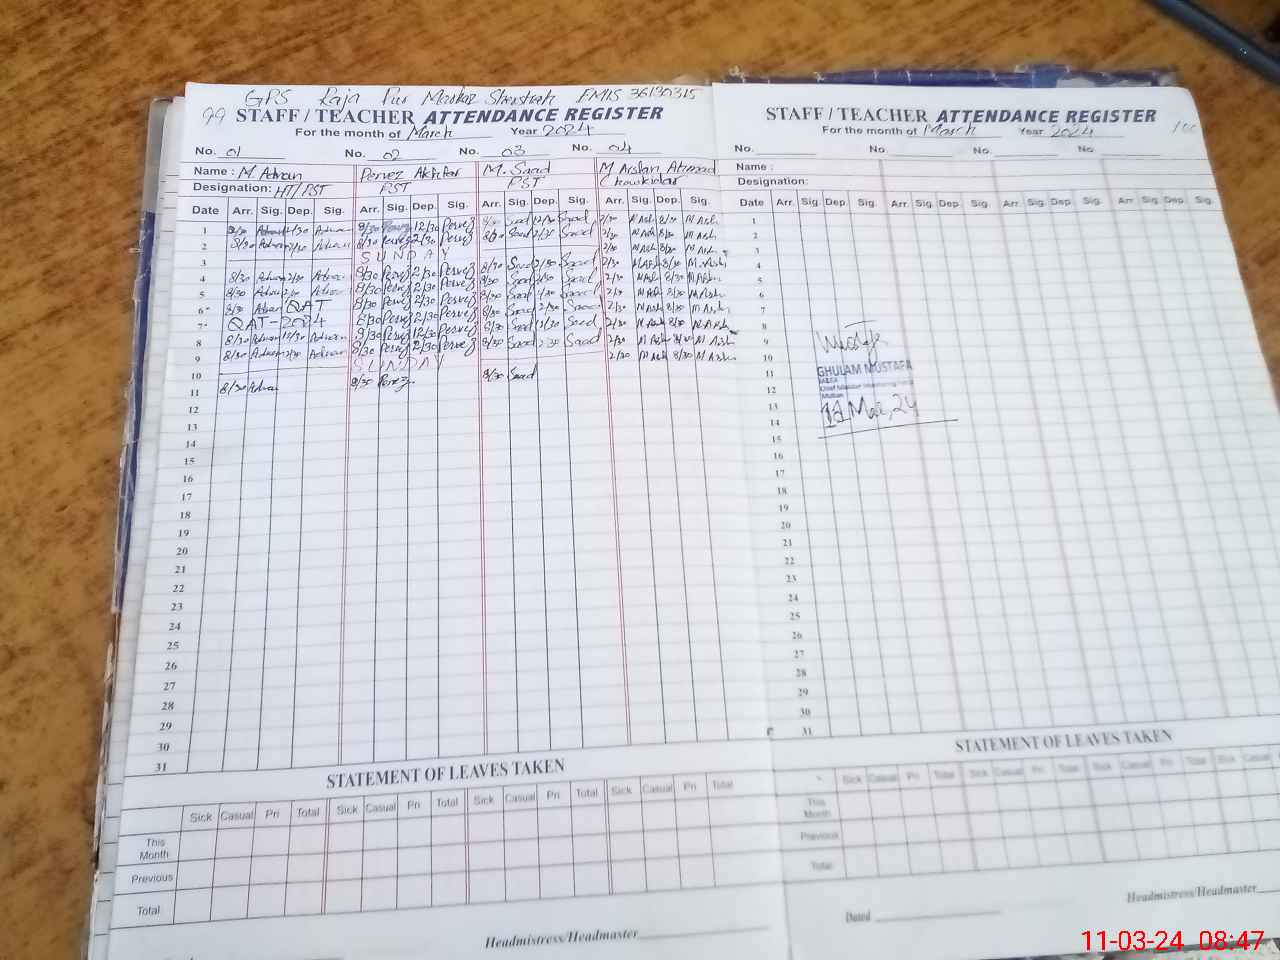 GPS Raja Pur Markaz Shershah EMIS 36130315
99 STAFF / TEACHER ATTENDANCE REGISTER
For the month of March Year 2024
No. 01 No. 02 No. 03 No. 04
Name : M Adnan Pervez Akhtar M. Saad M Arslan Ahmad
Designation: HT/PST PST PST Chowkidar
Date Arr. Sig. Dep. Sig. Arr. Sig. Dep. Sig. Arr. Sig. Dep. Sig. Arr. Sig. Dep. Sig.
1 8/30 Adnan 12/30 Adnan 8/30 Pervez 12/30 Pervez 8/30 Saad 12/30 Saad 2/30 M Ash 8/30 M Ash
2 8/30 Adnan 2/30 Adnan 8/30 Pervez 2/30 Pervez 8/30 Saad 2/30 Saad 2/30 M Ash 8/30 M Ash
3 SUNDAY 2/30 M Ash 8/30 M Ash
4 8/30 Adnan 2/30 Adnan 8/30 Pervez 2/30 Pervez 8/30 Saad 2/30 Saad 2/30 M Ash 8/30 M Ash
5 8/30 Adnan 2/30 Adnan 8/30 Pervez 2/30 Pervez 8/30 Saad 2/30 Saad 2/30 M Ash 8/30 M Ash
6 8/30 Adnan QAT 8/30 Pervez 2/30 Pervez 8/30 Saad 2/30 Saad 2/30 M Ash 8/30 M Ash
7 QAT-2024 8/30 Pervez 2/30 Pervez 8/30 Saad 2/30 Saad 2/30 M Ash 8/30 M Ash
8 8/30 Adnan 12/30 Adnan 8/30 Pervez 12/30 Pervez 8/30 Saad 12/30 Saad 2/30 M Ash 8/30 M Ash
9 8/30 Adnan 2/30 Adnan 8/30 Pervez 2/30 Pervez 8/30 Saad 2/30 Saad 2/30 M Ash 8/30 M Ash
10 SUNDAY 2/30 M Ash 8/30 M Ash
11 8/30 Adnan 8/30 Pervez 8/30 Saad
12
13
14
15
16
17
18
19
20
21
22
23
24
25
26
27
28
29
30
31
STATEMENT OF LEAVES TAKEN
Sick Casual Pri Total Sick Casual Pri Total Sick Casual Pri Total Sick Casual Pri Total
This Month
Previous
Total
Headmistress/Headmaster
STAFF / TEACHER ATTENDANCE REGISTER
For the month of March Year 2024 100
No. No. No. No.
Name :
Designation:
Date Arr. Sig. Dep. Sig. Arr. Sig. Dep. Sig. Arr. Sig. Dep. Sig. Arr. Sig. Dep. Sig.
1
2
3
4
5
6
7
8
9 Mustafa
10
11 GHULAM MUSTAFA
12 MEA
Chief Minister Monitoring Force
Multan
13 11 Mar, 24
14
15
16
17
18
19
20
21
22
23
24
25
26
27
28
29
30
31
STATEMENT OF LEAVES TAKEN
Sick Casual Pri Total Sick Casual Pri Total Sick Casual Pri Total Sick Casual
This Month
Previous
Total
Headmistress/Headmaster
Dated
11-03-24 08:47